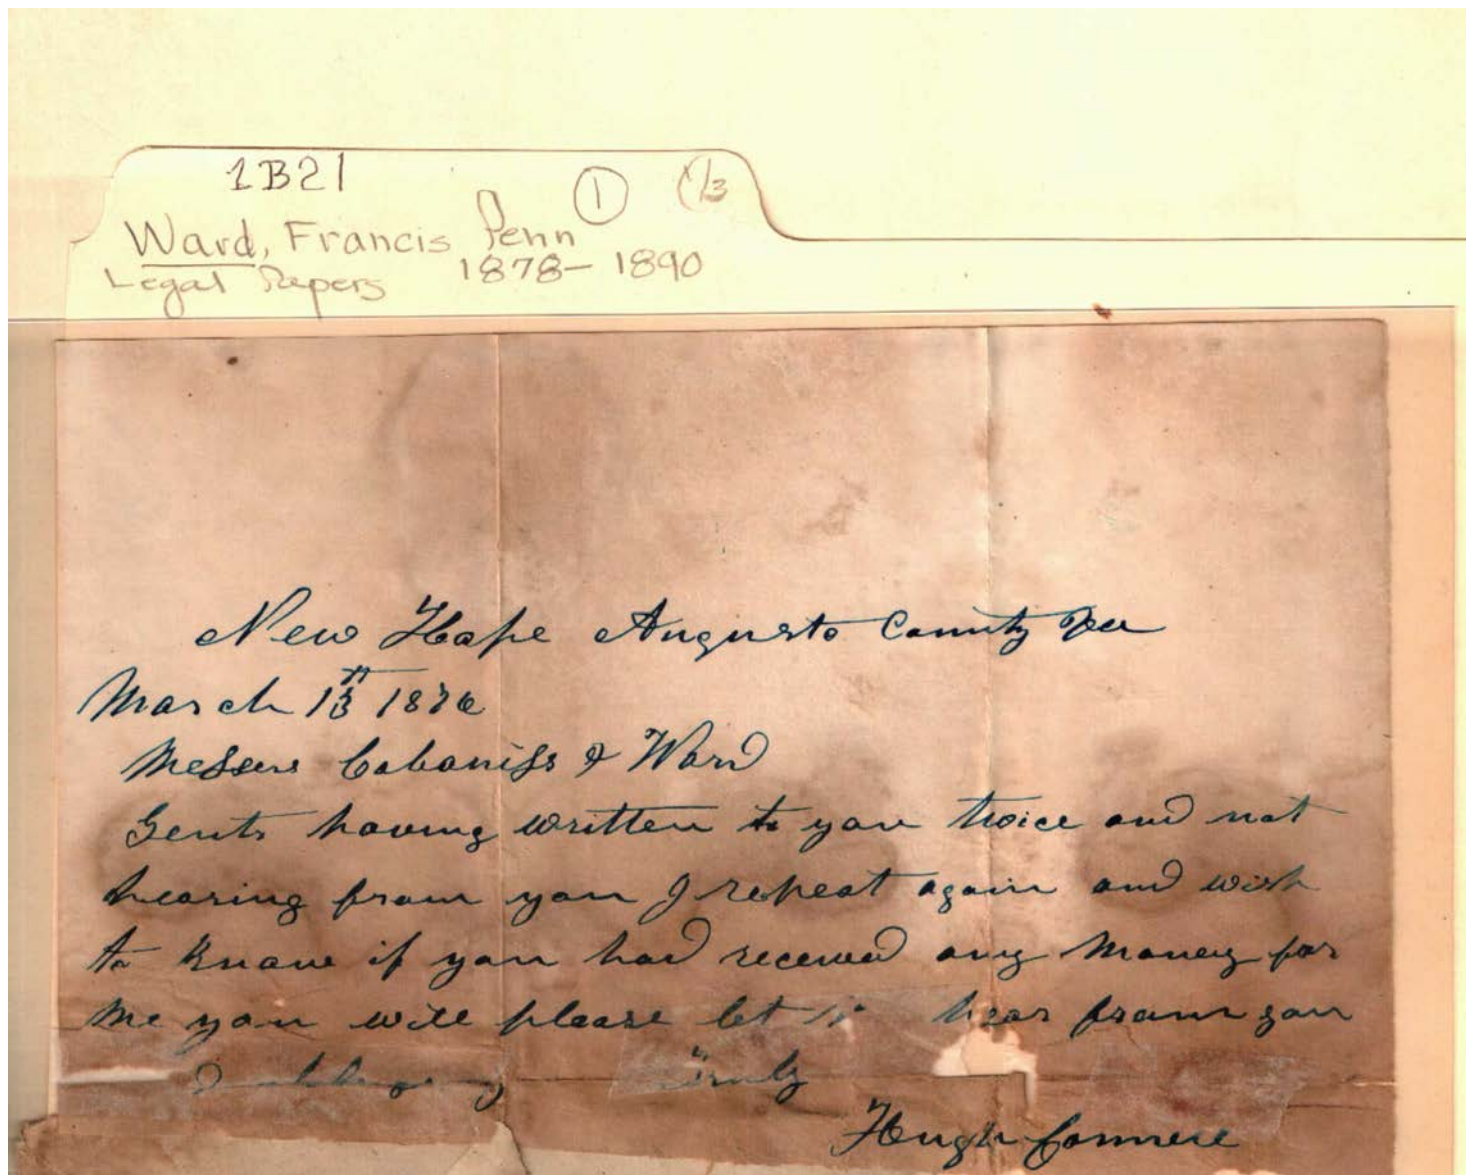 1B21
① (1/3
Ward, Francis Penn
Legal Papers 1878-1890
New Hope Augusta County Va
March 13th 1876
Messers Cabaniss & Ward
Gents having written to you twice and not
hearing from you I repeat again and wish
to know if you had received any money for
me you will please let hear from you
Truly
Hugh